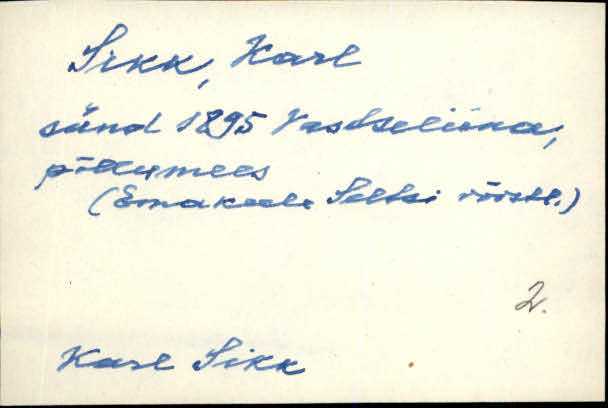 Sikk, Karl
sünd 1895 Vastseliina,
põllumees
(Emakeele Seltsi võistl.)
2.
Karl Sikk